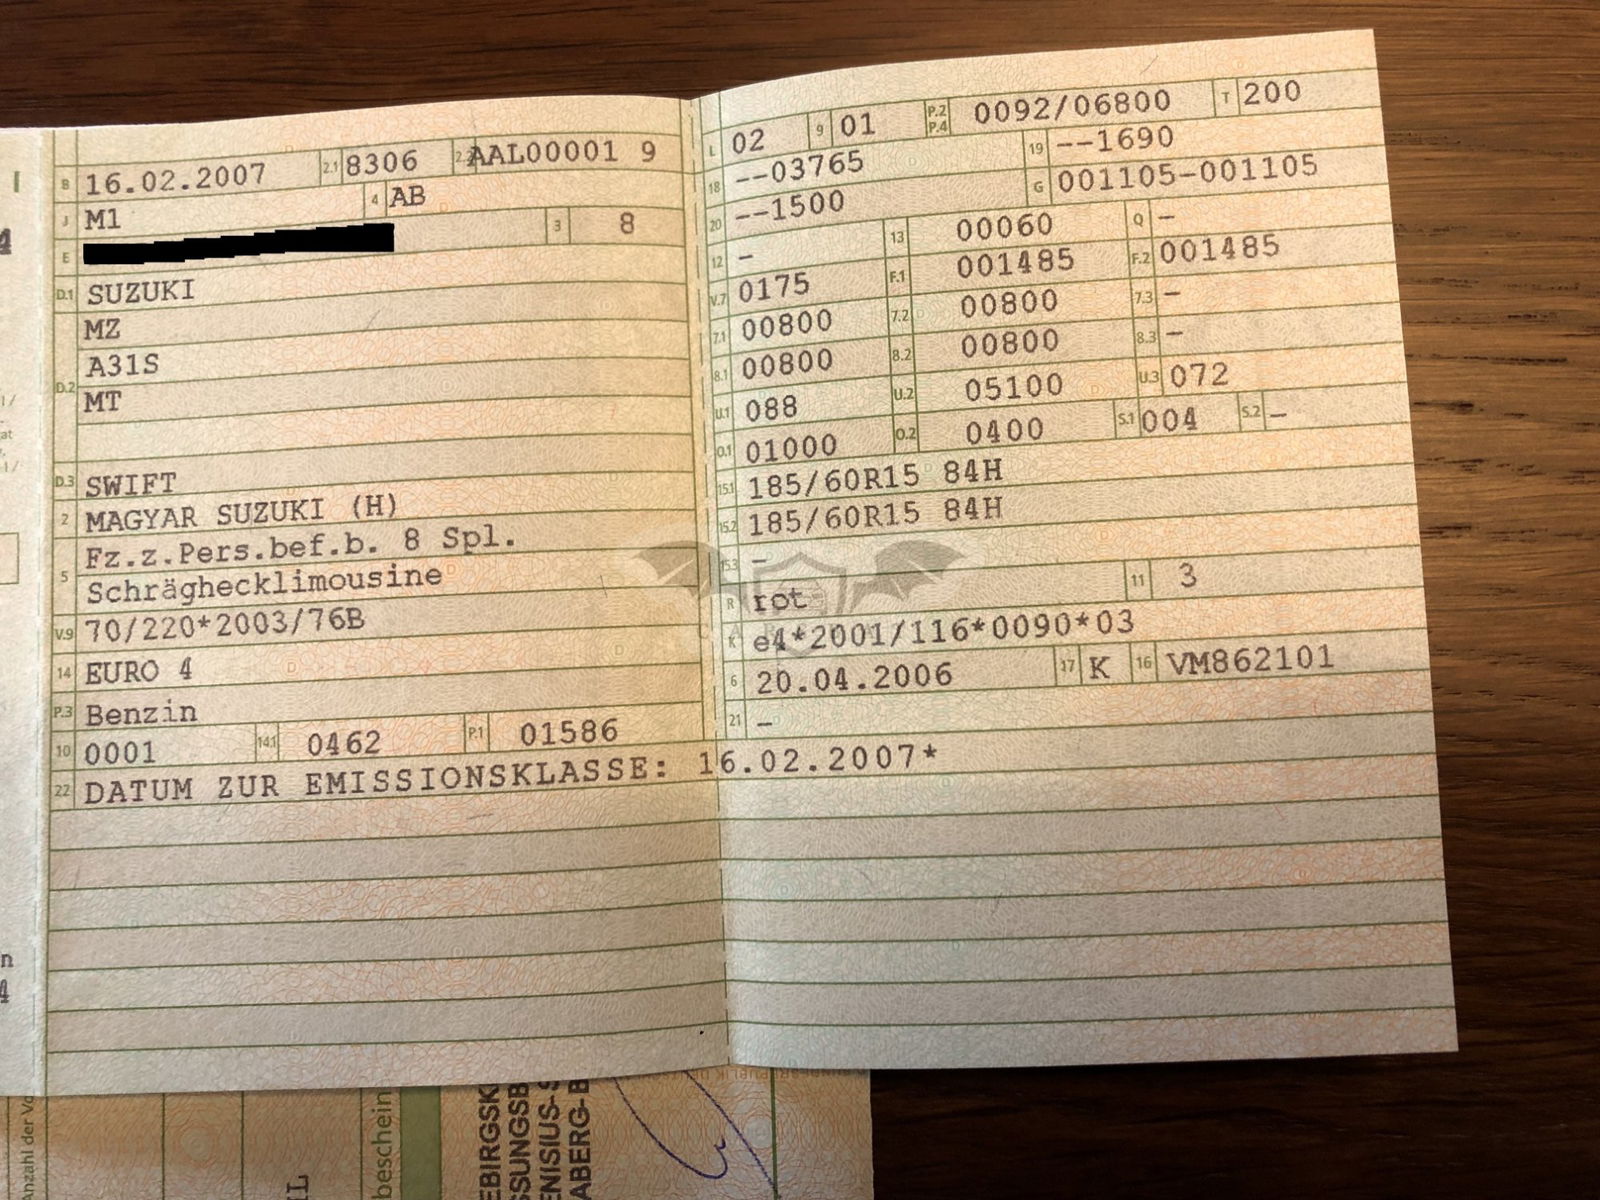 B 16.02.2007 2.1 8306 2.2 AAL00001 9
J M1 4 AB
E 3 8
D.1 SUZUKI
MZ
D.2 A31S
MT
D.3 SWIFT
2 MAGYAR SUZUKI (H)
5 Fz.z.Pers.bef.b. 8 Spl.
Schräghecklimousine
V.9 70/220*2003/76B
14 EURO 4
P.3 Benzin
10 0001 14.1 0462 P.1 01586
22 DATUM ZUR EMISSIONSKLASSE: 16.02.2007*
L 02 9 01 P.2 P.4 0092/06800 T 200
18 --03765 19 --1690
20 --1500 G 001105-001105
12 - 13 00060 Q -
V.7 0175 F.1 001485 F.2 001485
7.1 00800 7.2 00800 7.3 -
8.1 00800 8.2 00800 8.3 -
U.1 088 U.2 05100 U.3 072
O.1 01000 O.2 0400 S.1 004 S.2 -
15.1 185/60R15 84H
15.2 185/60R15 84H
15.3 -
R rot 11 3
K e4*2001/116*0090*03
6 20.04.2006 17 K 16 VM862101
21 -
Anzahl der Vo
bescheini
EBIRGSK
SSUNGSB
ENISIUS-S
ABERG-B